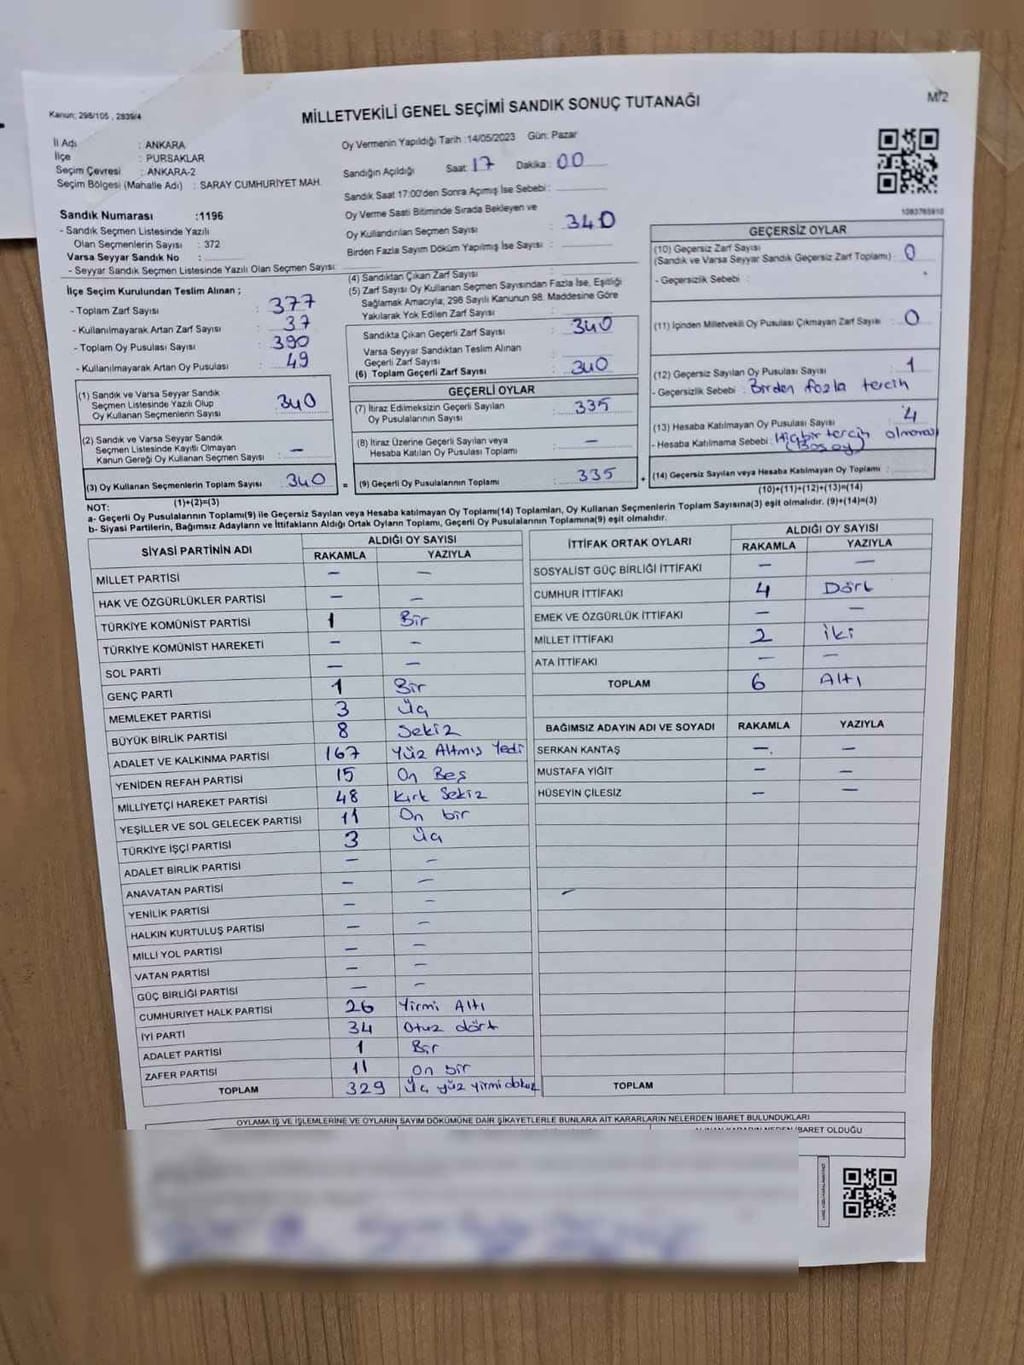 MİLLETVEKİLİ GENEL SEÇİMİ SANDIK SONUÇ TUTANAĞI
M/2
Kanun: 298/105 , 2839/4
İl Adı : ANKARA
İlçe : PURSAKLAR
Seçim Çevresi : ANKARA-2
Seçim Bölgesi (Mahalle Adı) : SARAY CUMHURİYET MAH.
Sandık Numarası :1196
- Sandık Seçmen Listesinde Yazılı
Olan Seçmenlerin Sayısı : 372
Varsa Seyyar Sandık No :
- Seyyar Sandık Seçmen Listesinde Yazılı Olan Seçmen Sayısı:
Oy Vermenin Yapıldığı Tarih :14/05/2023 Gün: Pazar
Sandığın Açıldığı Saat: 17 Dakika : 00
Sandık Saat 17:00'den Sonra Açımış İse Sebebi :
Oy Verme Saati Bitiminde Sırada Bekleyen ve
Oy Kullandırılan Seçmen Sayısı : 340
Birden Fazla Sayım Döküm Yapılmış İse Sayısı :
1093765910
İlçe Seçim Kurulundan Teslim Alınan ;
- Toplam Zarf Sayısı : 377
- Kullanılmayarak Artan Zarf Sayısı : 37
- Toplam Oy Pusulası Sayısı : 390
- Kullanılmayarak Artan Oy Pusulası : 49
(1) Sandık ve Varsa Seyyar Sandık
Seçmen Listesinde Yazılı Olup
Oy Kullanan Seçmenlerin Sayısı : 340
(2) Sandık ve Varsa Seyyar Sandık
Seçmen Listesinde Kayıtlı Olmayan
Kanun Gereği Oy Kullanan Seçmen Sayısı : —
(3) Oy Kullanan Seçmenlerin Toplam Sayısı : 340
(1)+(2)=(3)
(4) Sandıktan Çıkan Zarf Sayısı :
(5) Zarf Sayısı Oy Kullanan Seçmen Sayısından Fazla İse, Eşitliği
Sağlamak Amacıyla, 298 Sayılı Kanunun 98. Maddesine Göre
Yakılarak Yok Edilen Zarf Sayısı :
Sandıkta Çıkan Geçerli Zarf Sayısı : 340
Varsa Seyyar Sandıktan Teslim Alınan
Geçerli Zarf Sayısı :
(6) Toplam Geçerli Zarf Sayısı : 340
GEÇERLİ OYLAR
(7) İtiraz Edilmeksizin Geçerli Sayılan
Oy Pusulalarının Sayısı : 335
(8) İtiraz Üzerine Geçerli Sayılan veya
Hesaba Katılan Oy Pusulası Toplamı : —
= (9) Geçerli Oy Pusulalarının Toplamı : 335
GEÇERSİZ OYLAR
(10) Geçersiz Zarf Sayısı
(Sandık ve Varsa Seyyar Sandık Geçersiz Zarf Toplamı) : 0
- Geçersizlik Sebebi :
(11) İçinden Milletvekili Oy Pusulası Çıkmayan Zarf Sayısı : 0
(12) Geçersiz Sayılan Oy Pusulası Sayısı : 1
- Geçersizlik Sebebi : Birden fazla tercih
(13) Hesaba Katılmayan Oy Pusulası Sayısı : 4
- Hesaba Katılmama Sebebi : Hiçbir tercih olmaması
(Boş oy)
+ (14) Geçersiz Sayılan veya Hesaba Katılmayan Oy Toplamı :
(10)+(11)+(12)+(13)=(14)
NOT:
a- Geçerli Oy Pusulalarının Toplamı(9) ile Geçersiz Sayılan veya Hesaba katılmayan Oy Toplamı(14) Toplamları, Oy Kullanan Seçmenlerin Toplam Sayısına(3) eşit olmalıdır. (9)+(14)=(3)
b- Siyasi Partilerin, Bağımsız Adayların ve İttifakların Aldığı Ortak Oyların Toplamı, Geçerli Oy Pusulalarının Toplamına(9) eşit olmalıdır.
SİYASİ PARTİNİN ADI ALDIĞI OY SAYISI
RAKAMLA YAZIYLA
MİLLET PARTİSİ — —
HAK VE ÖZGÜRLÜKLER PARTİSİ — —
TÜRKİYE KOMÜNİST PARTİSİ 1 Bir
TÜRKİYE KOMÜNİST HAREKETİ — —
SOL PARTİ — —
GENÇ PARTİ 1 Bir
MEMLEKET PARTİSİ 3 Üç
BÜYÜK BİRLİK PARTİSİ 8 Sekiz
ADALET VE KALKINMA PARTİSİ 167 Yüz Altmış Yedi
YENİDEN REFAH PARTİSİ 15 On Beş
MİLLİYETÇİ HAREKET PARTİSİ 48 Kırk Sekiz
YEŞİLLER VE SOL GELECEK PARTİSİ 11 On bir
TÜRKİYE İŞÇİ PARTİSİ 3 Üç
ADALET BİRLİK PARTİSİ — —
ANAVATAN PARTİSİ — —
YENİLİK PARTİSİ — —
HALKIN KURTULUŞ PARTİSİ — —
MİLLİ YOL PARTİSİ — —
VATAN PARTİSİ — —
GÜÇ BİRLİĞİ PARTİSİ — —
CUMHURİYET HALK PARTİSİ 26 Yirmi Altı
İYİ PARTİ 34 Otuz dört
ADALET PARTİSİ 1 Bir
ZAFER PARTİSİ 11 On bir
TOPLAM 329 Üç yüz yirmi dokuz
İTTİFAK ORTAK OYLARI ALDIĞI OY SAYISI
RAKAMLA YAZIYLA
SOSYALİST GÜÇ BİRLİĞİ İTTİFAKI — —
CUMHUR İTTİFAKI 4 Dört
EMEK VE ÖZGÜRLÜK İTTİFAKI — —
MİLLET İTTİFAKI 2 İki
ATA İTTİFAKI — —
TOPLAM 6 Altı
BAĞIMSIZ ADAYIN ADI VE SOYADI RAKAMLA YAZIYLA
SERKAN KANTAŞ — —
MUSTAFA YİĞİT — —
HÜSEYİN ÇİLESİZ — —
TOPLAM
OYLAMA İŞ VE İŞLEMLERİNE VE OYLARIN SAYIM DÖKÜMÜNE DAİR ŞİKAYETLERLE BUNLARA AİT KARARLARIN NELERDEN İBARET BULUNDUKLARI
İBARET OLDUĞU